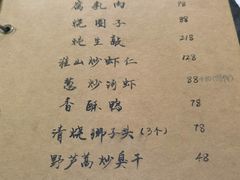 腐乳肉 78
烧圈子 88
炖生敲 218
淮山炒虾仁 128
葱炒河虾 88
香酥鸭 78
清烧狮子头(3个) 78
野芦蒿炒臭干 48